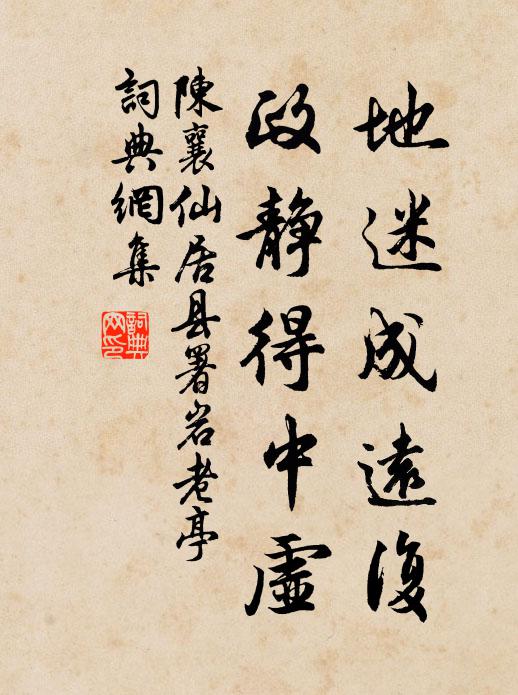 地迷成遠復
政靜得中虛
陳襄仙居县署岩老亭
詞典網集
詞典網印